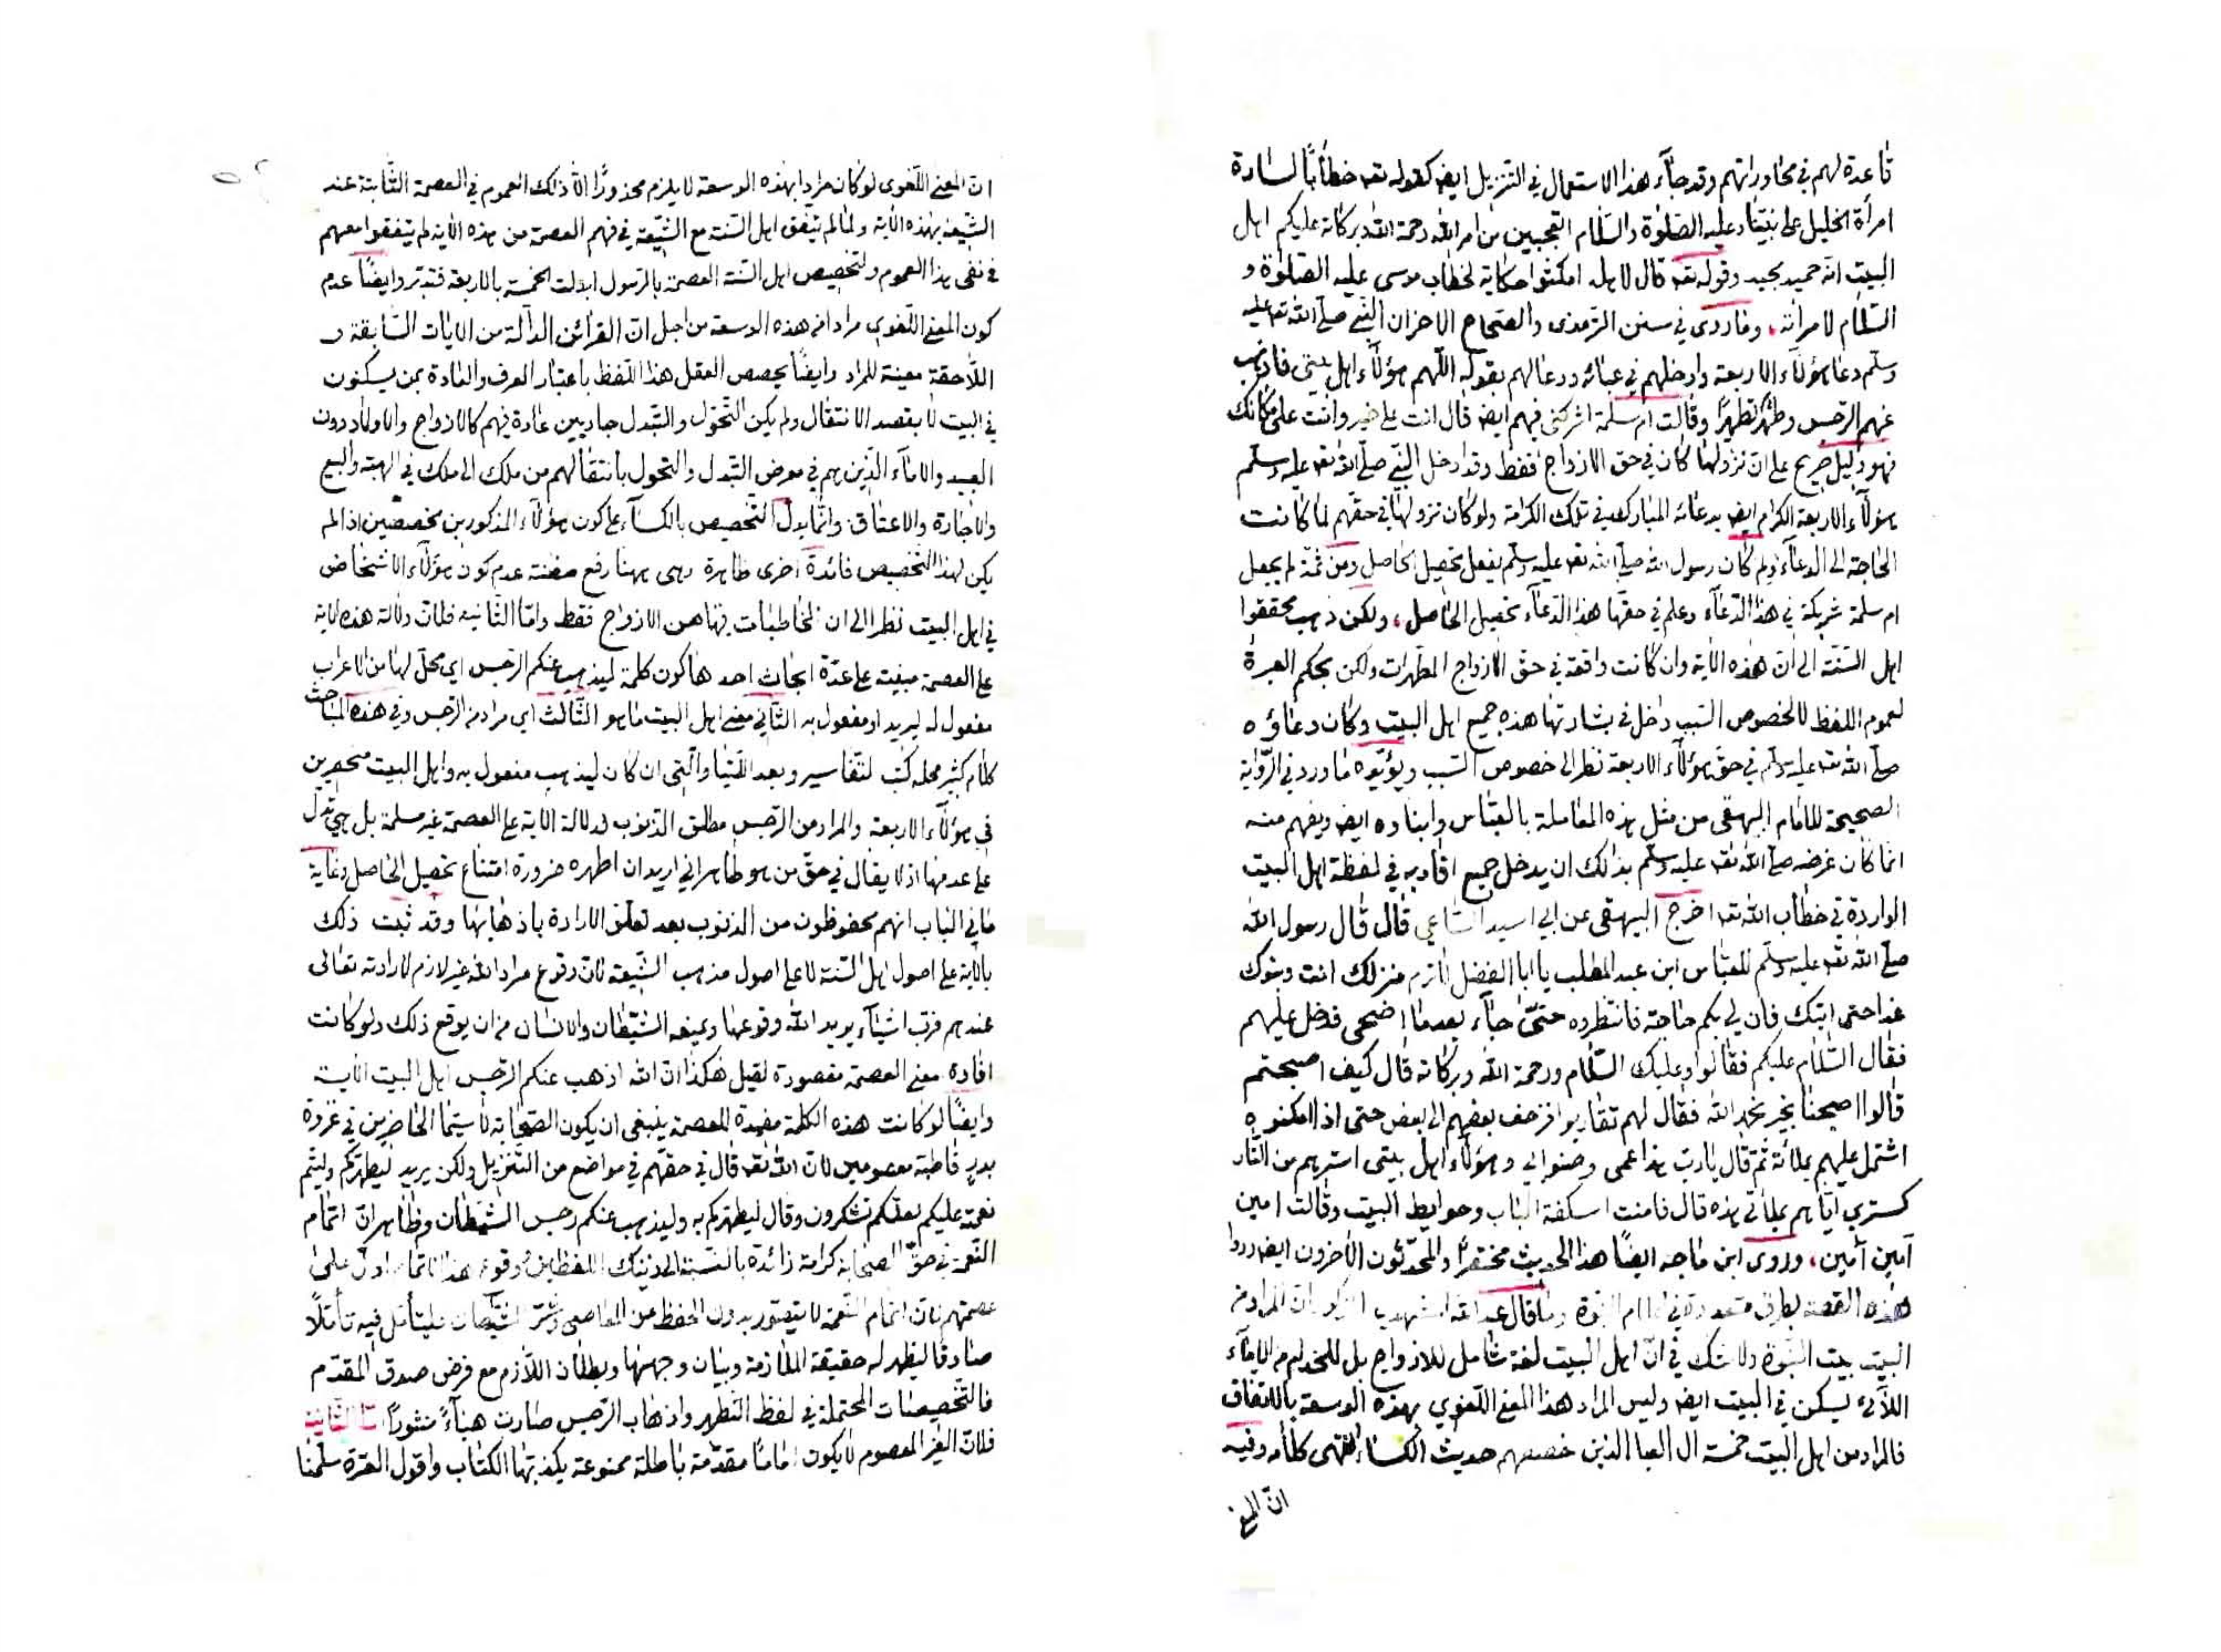 قاعدة لهم في محاوراتهم وقد جاء هذا الاستعمال في التنزيل ايض كقوله تعه خطابًا لسارة
امرأة الخليل على نبينا وعليه الصلوة والسلام اتعجبين من امر الله رحمة الله وبركاته عليكم اهل
البيت انه حميد مجيد وقوله تعه قال لاهله امكثوا حكاية لخطاب موسى عليه الصلوة و
السلام لامرأته، وما روى في سنن الترمذى والصحاح الاخر ان النبي صلى الله تعه عليه
وسلم دعا هؤلاء الاربعة وادخلهم في عبائه ودعا لهم بقوله اللهم هؤلاء اهل بيتى فاذهب
عنهم الرجس وطهرهم تطهيرًا وقالت ام سلمة اشركنى فيهم ايض قال انت على خير وانت على مكانك
فهو دليل صريح على ان نزولها كان في حق الازواج فقط وقد ادخل النبي صلى الله تعه عليه وسلم
هؤلاء الاربعة الكرام ايض بدعائه المبارك في تلك الكرامة ولو كان نزولها في حقهم لما كانت
الحاجة الى الدعاء ولم كان رسول الله صلى الله تعه عليه وسلم يفعل تحصيل الحاصل ومن ثمة لم يجعل
ام سلمة شريكة في هذا الدعاء وعلم في حقها هذا الدعاء تحصيل الحاصل، ولكن ذهب محققوا
اهل السنة الى ان هذه الآية وان كانت واقعة في حق الازواج المطهرات ولكن بحكم العبرة
لعموم اللفظ لا لخصوص السبب داخل في بشارتها هذه جميع اهل البيت وكان دعاؤه
صلى الله تعه عليه وسلم في حق هؤلاء الاربعة نظرا الى خصوص السبب ويؤيده ما ورد في الرواية
الصحيحة للامام البيهقى من مثل هذه المعاملة بالعباس وابناده ايض ويفهم منه
انما كان غرضه صلى الله تعه عليه وسلم بذلك ان يدخل جميع اقاربه في لفظة اهل البيت
الواردة في خطاب الله تعه اخرج البيهقى عن ابي اسيد الساعي قال قال رسول الله
صلى الله تعه عليه وسلم للعباس ابن عبد المطلب يا ابا الفضل لا ترم منزلك انت وبنوك
غدا حتى اتيك فان لي بكم حاجة فانتظروه حتى جاء بعد ما اضحى فدخل عليهم
فقال السلام عليكم فقالوا وعليك السلام ورحمة الله وبركاته قال كيف اصبحتم
قالوا اصبحنا بخير نحمد الله فقال لهم تقاربوا فزحف بعضهم الى بعض حتى اذا امكنوه
اشتمل عليهم بملائة ثم قال يا رب هذا عمى وصنو ابي وهؤلاء اهل بيتى استرهم من النار
كسترى اياهم بملائتى هذه قال فامنت اسكفة الباب وحوايط البيت وقالت امين
آمين آمين، وروى ابن ماجه ايضًا هذا الحديث مختصرًا والمحدثون الآخرون ايض رووا
هذه القصة بطرق متعددة في اعلام النبوة وما قال عبد الله المشهدي ان المراد من
البيت بيت النبوة ولا شك في ان اهل البيت لغة شامل للازواج بل للخدام من الاماء
اللآئى يسكن في البيت ايض وليس المراد هذا المعنى اللغوي بهذه الوسعة بالاتفاق
فالمراد من اهل البيت خمسة ال العبا الذين خصصهم حديث الكساء انتهى كلامه وفيه
انّ المعنى
ان المعنى اللغوى لو كان مرادا بهذه الوسعة لا يلزم محذورًا الا ذلك العموم في العصمة الثابتة عند
الشيعة بهذه الآية ولما لم يتفق اهل السنة مع الشيعة في فهم العصمة من هذه الآية لم يتفقوا معهم
في نفى هذا العموم ولتخصيص اهل السنة العصمة بالرسول ابدلت الخمسة بالاربعة فتدبر وايضًا عدم
كون المعنى اللغوي مرادا في هذه الوسعة من اجل ان القرائن الدالة من الايات السابقة و
اللاحقة معينة للمراد وايضًا يخصص العقل هذا اللفظ باعتبار العرف والعادة بمن يسكنون
في البيت لا بقصد الانتقال ولم يكن التحول والتبدل جاديين عادة فيهم كالازواج والاولاد دون
العبيد والاماء الذين هم في معرض التبدل والتحول بانتقالهم من ملك الى ملك في الهبة والبيع
والاجارة والاعتاق وانما يدل التخصيص بالكساء على كون هؤلاء المذكورين مخصصين اذا لم
يكن لهذا التخصيص فائدة اخرى ظاهرة وهى ههنا رفع مظنة عدم كون هؤلاء الاشخاص
في اهل البيت نظرا الى ان المخاطبات فيها هن الازواج فقط واما الثانية فلان دلالة هذه الآية
على العصمة مبنية على عدة ابحاث احدها كون كلمة ليذهب عنكم الرجس اي محل لها من الاعراب
مفعول له ليريد او مفعول به الثاني معنى اهل البيت ما هو الثالث اي مراد من الرجس وفي هذه المباحث
كلام كثير محله كتب التفاسير وبعد اللتيا والتى ان كان ليذهب مفعول به واهل البيت منحصرين
في هؤلاء الاربعة والمراد من الرجس مطلق الذنوب فدلالة الآية على العصمة غير مسلمة بل هي تدل
على عدمها اذ لا يقال في حق من هو طاهر اني اريد ان اطهره ضرورة امتناع تحصيل الحاصل وغاية
ما في الباب انهم محفوظون من الذنوب بعد تعلق الارادة باذهابها وقد ثبت ذلك
بالآية على اصول اهل السنة لا على اصول مذهب الشيعة لان وقوع مراد الله غير لازم لارادته تعالى
عندهم فرب اشياء يريد الله وقوعها ويمنعه الشيطان والانسان من ان يوقع ذلك ولو كانت
افادة معنى العصمة مقصودة لقيل هكذا ان الله اذهب عنكم الرجس اهل البيت الآية
وايضًا لو كانت هذه الكلمة مفيدة للعصمة ينبغى ان يكون الصحابة لا سيما الحاضرين في غزوة
بدرٍ قاطبة معصومين لان الله تعه قال في حقهم في مواضع من التنزيل ولكن يريد ليطهركم وليتم
نعمته عليكم لعلكم تشكرون وقال ليطهركم به وليذهب عنكم رجس الشيطان وظاهر ان اتمام
النعمة في حق الصحابة كرامة زائدة بالنسبة الى ذينك اللفظين ووقوع هذا الاتمام ادل على
عصمتهم لان اتمام النعمة لا يتصور بدون الحفظ عن المعاصى وشر الشيطان فليتأمل فيه تأملًا
صادقا ليظهر له حقيقة الملازمة وبيان وجهها وبطلان اللازم مع فرض صدق المقدم
فالتخصيصات المحتملة في لفظ التطهر واذهاب الرجس صارت هباءً منثورًا اما الثالثة
فلان الغير المعصوم لا يكون امامًا مقدمة باطلة ممنوعة يكذبها الكتاب واقول العترة سلمنا